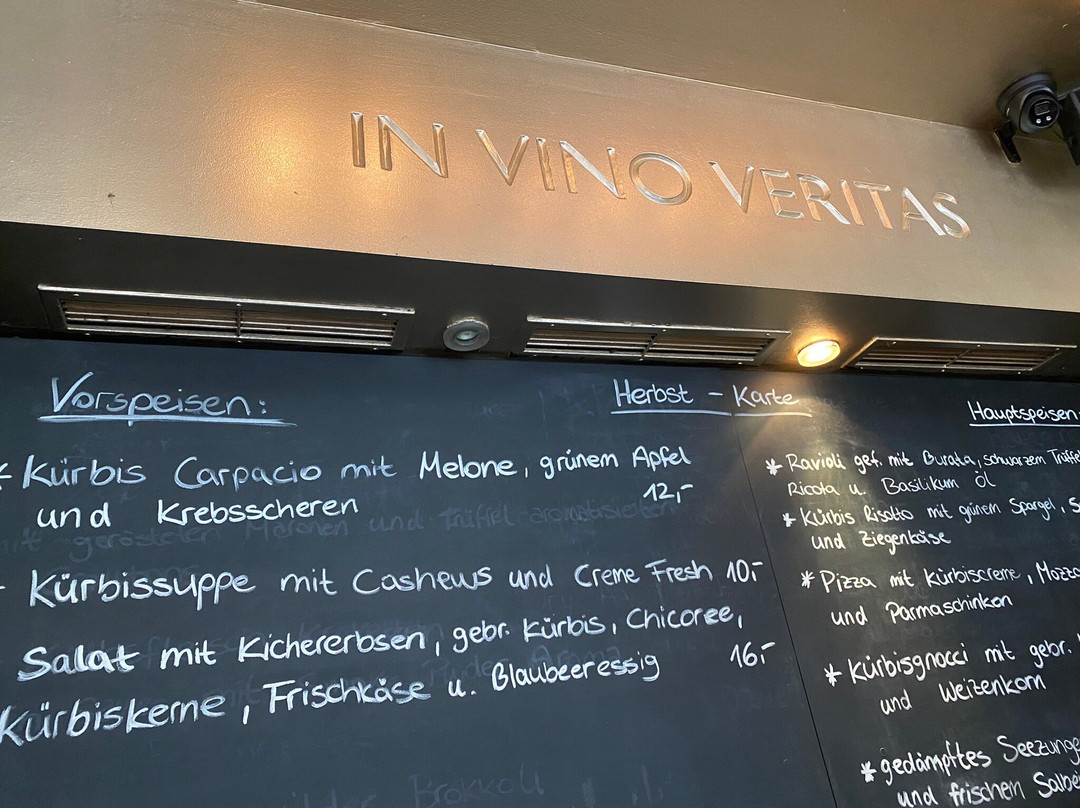 IN VINO VERITAS
Vorspeisen:
* Kürbis Carpacio mit Melone, grünem Apfel
und Krebsscheren 12,-
Kürbissuppe mit Cashews und Creme Fresh 10,-
Salat mit Kichererbsen, gebr. Kürbis, Chicoree,
Kürbiskerne, Frischkäse u. Blaubeeressig 16,-
Herbst - Karte
Hauptspeisen:
* Ravioli gef. mit Burata, schwarzem Trüffel
Ricota u. Basilikum Öl
* Kürbis Risotto mit grünem Spargel,
und Ziegenkäse
* Pizza mit Kürbiscreme,
und Parmaschinken
* Kürbisgnocci mit gebr.
und Weizenkorn
* gedämpftes Seezunge
und frischem